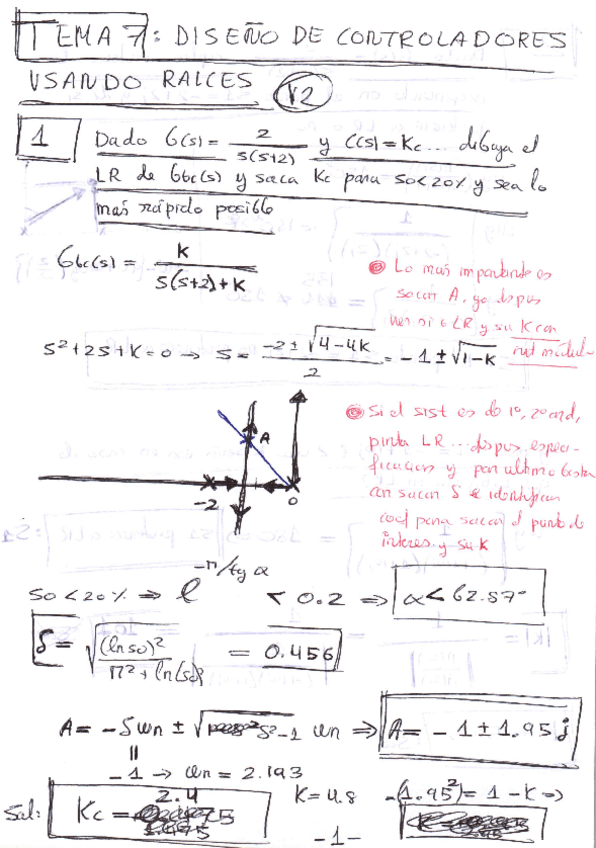 TEMA 7: DISEÑO DE CONTROLADORES
USANDO RAICES V2
1 Dado G(s) = 2 / s(s+2) y C(s) = Kc ... dibuja el
LR de Gbc(s) y saca Kc para SO<20% y sea lo
más rápido posi66
Gbc(s) = K / s(s+2)+K
Lo mas importante es
sacar A, ya dspus
si ∈ LR y su K con
mdul
s²+2s+k=0 → s = -2 ± √4-4k / 2 = -1 ± √1-k
Si el sist es de 1º, 2º ord,
pinta LR ... dspus especi-
ficacions y por ultimo basta
con sacar S e identificar
coef para sacar el punto de
interes y su K
A
-2
0
SO < 20% ⇒ e^(-π/tg α) < 0.2 ⇒ α < 62.87°
δ = √(ln so)² / π² + ln(so)² = 0.456
A = - δ ωn ± √δ²-1 ωn ⇒ A = - 1 ± 1.95 j
=
-1 → ωn = 2.193
Sol: Kc = 2.4
K = 4.8
-(1.95²) = 1 - K ⇒
-1-